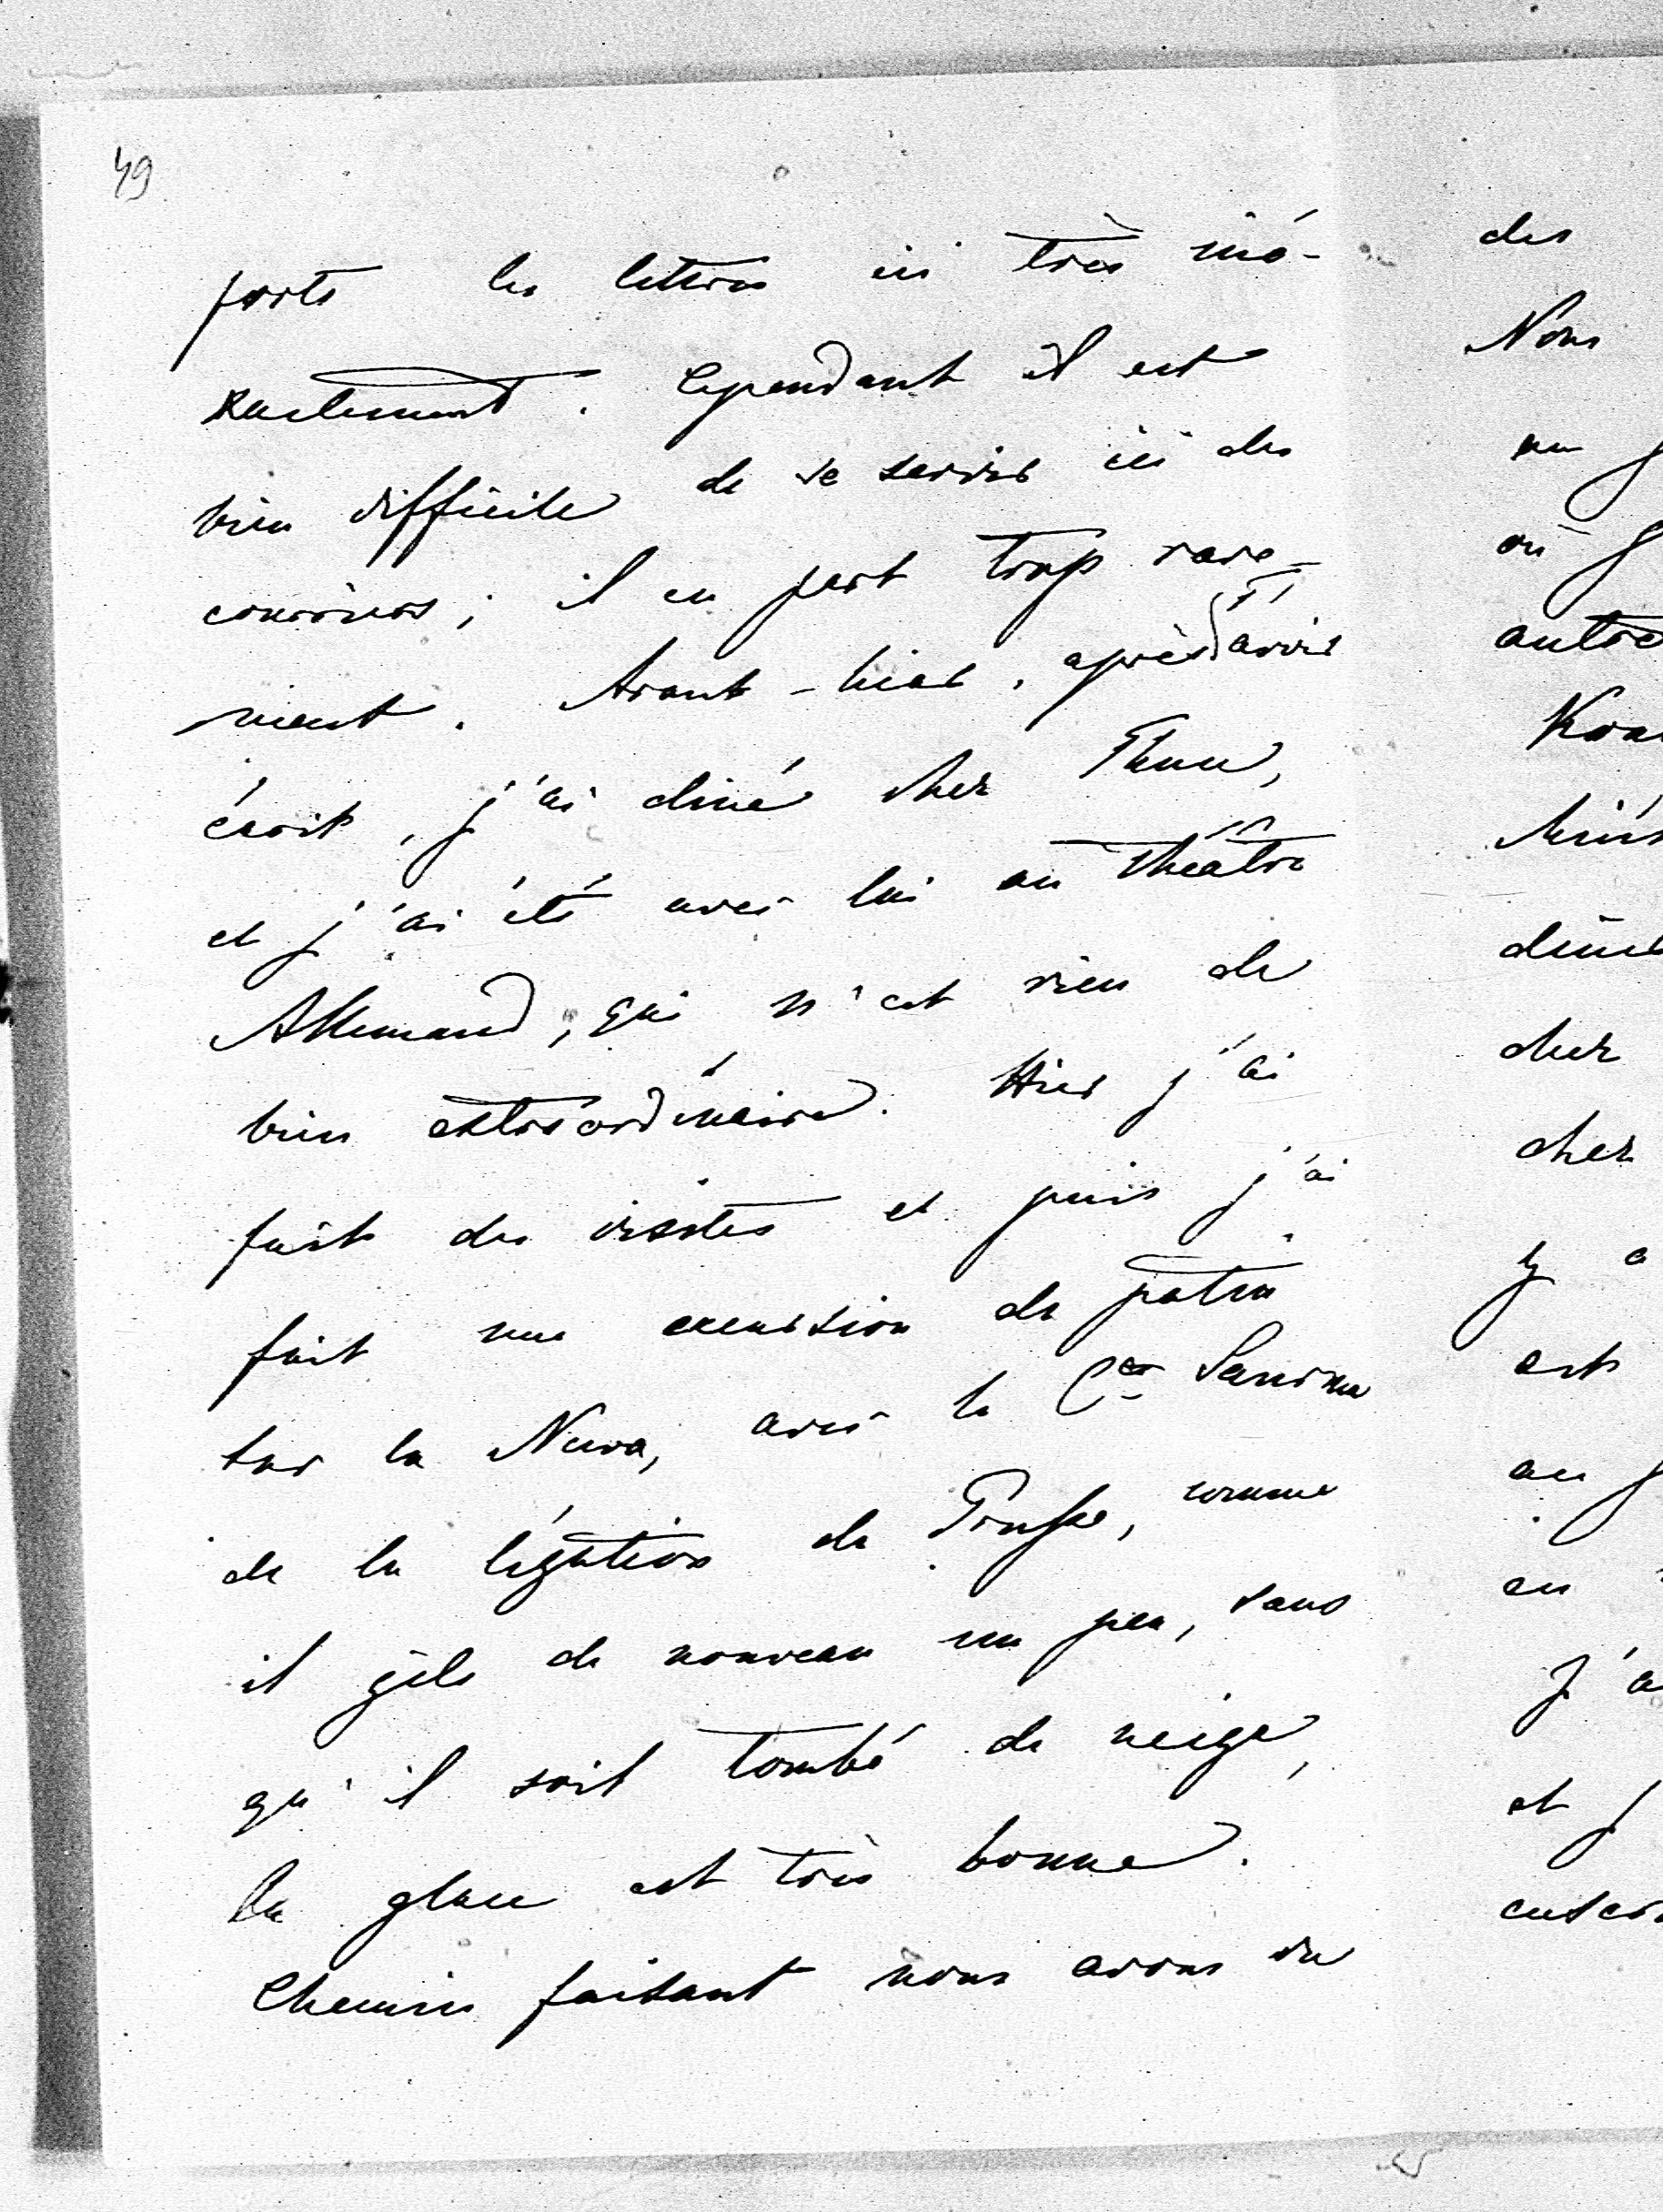 49
porte les lettres ici très iné-
xactement. Cependant il est
bien difficile de se servir ici des
courriers; il en part trop rare-
ment. Avant-hier, après T'avoir
écrit, j'ai diné chez Thun,
et j'ai été avec lui au théâtre
Allemand, qui n'est rien de
bien extraordinaire. Hier j'ai
fait des visites et puis j'ai
fait une excursion de patin
sur la Neva, avec le Cte
de la légation de Prusse, comme
il gèle de nouveau un peu, sans
qu'il soit tombé de neige,
la glace est très bonne.
Chemin faisant nous avons vu
des
Nous
au
où
autre
diné
chez
chez
y a
est
au
en
J'a
et j